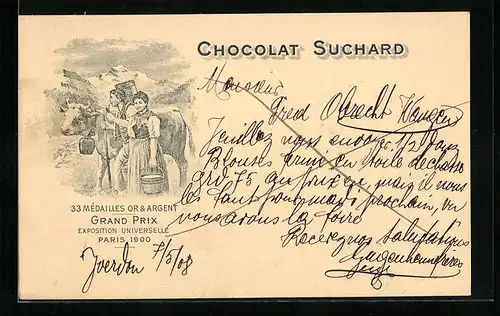 CHOCOLAT SUCHARD
Monsieur
Fred Obrecht Wangen
Veuillez nous envoyer 1/2 Douz
Blouses en toile de chasse
75 au
mais il nous
les faut pour mardi prochain,
nous avons la foire
Recevez nos salutations
33 MÉDAILLES OR & ARGENT
GRAND PRIX
EXPOSITION UNIVERSELLE
PARIS 1900
Yverdon 7/5/08